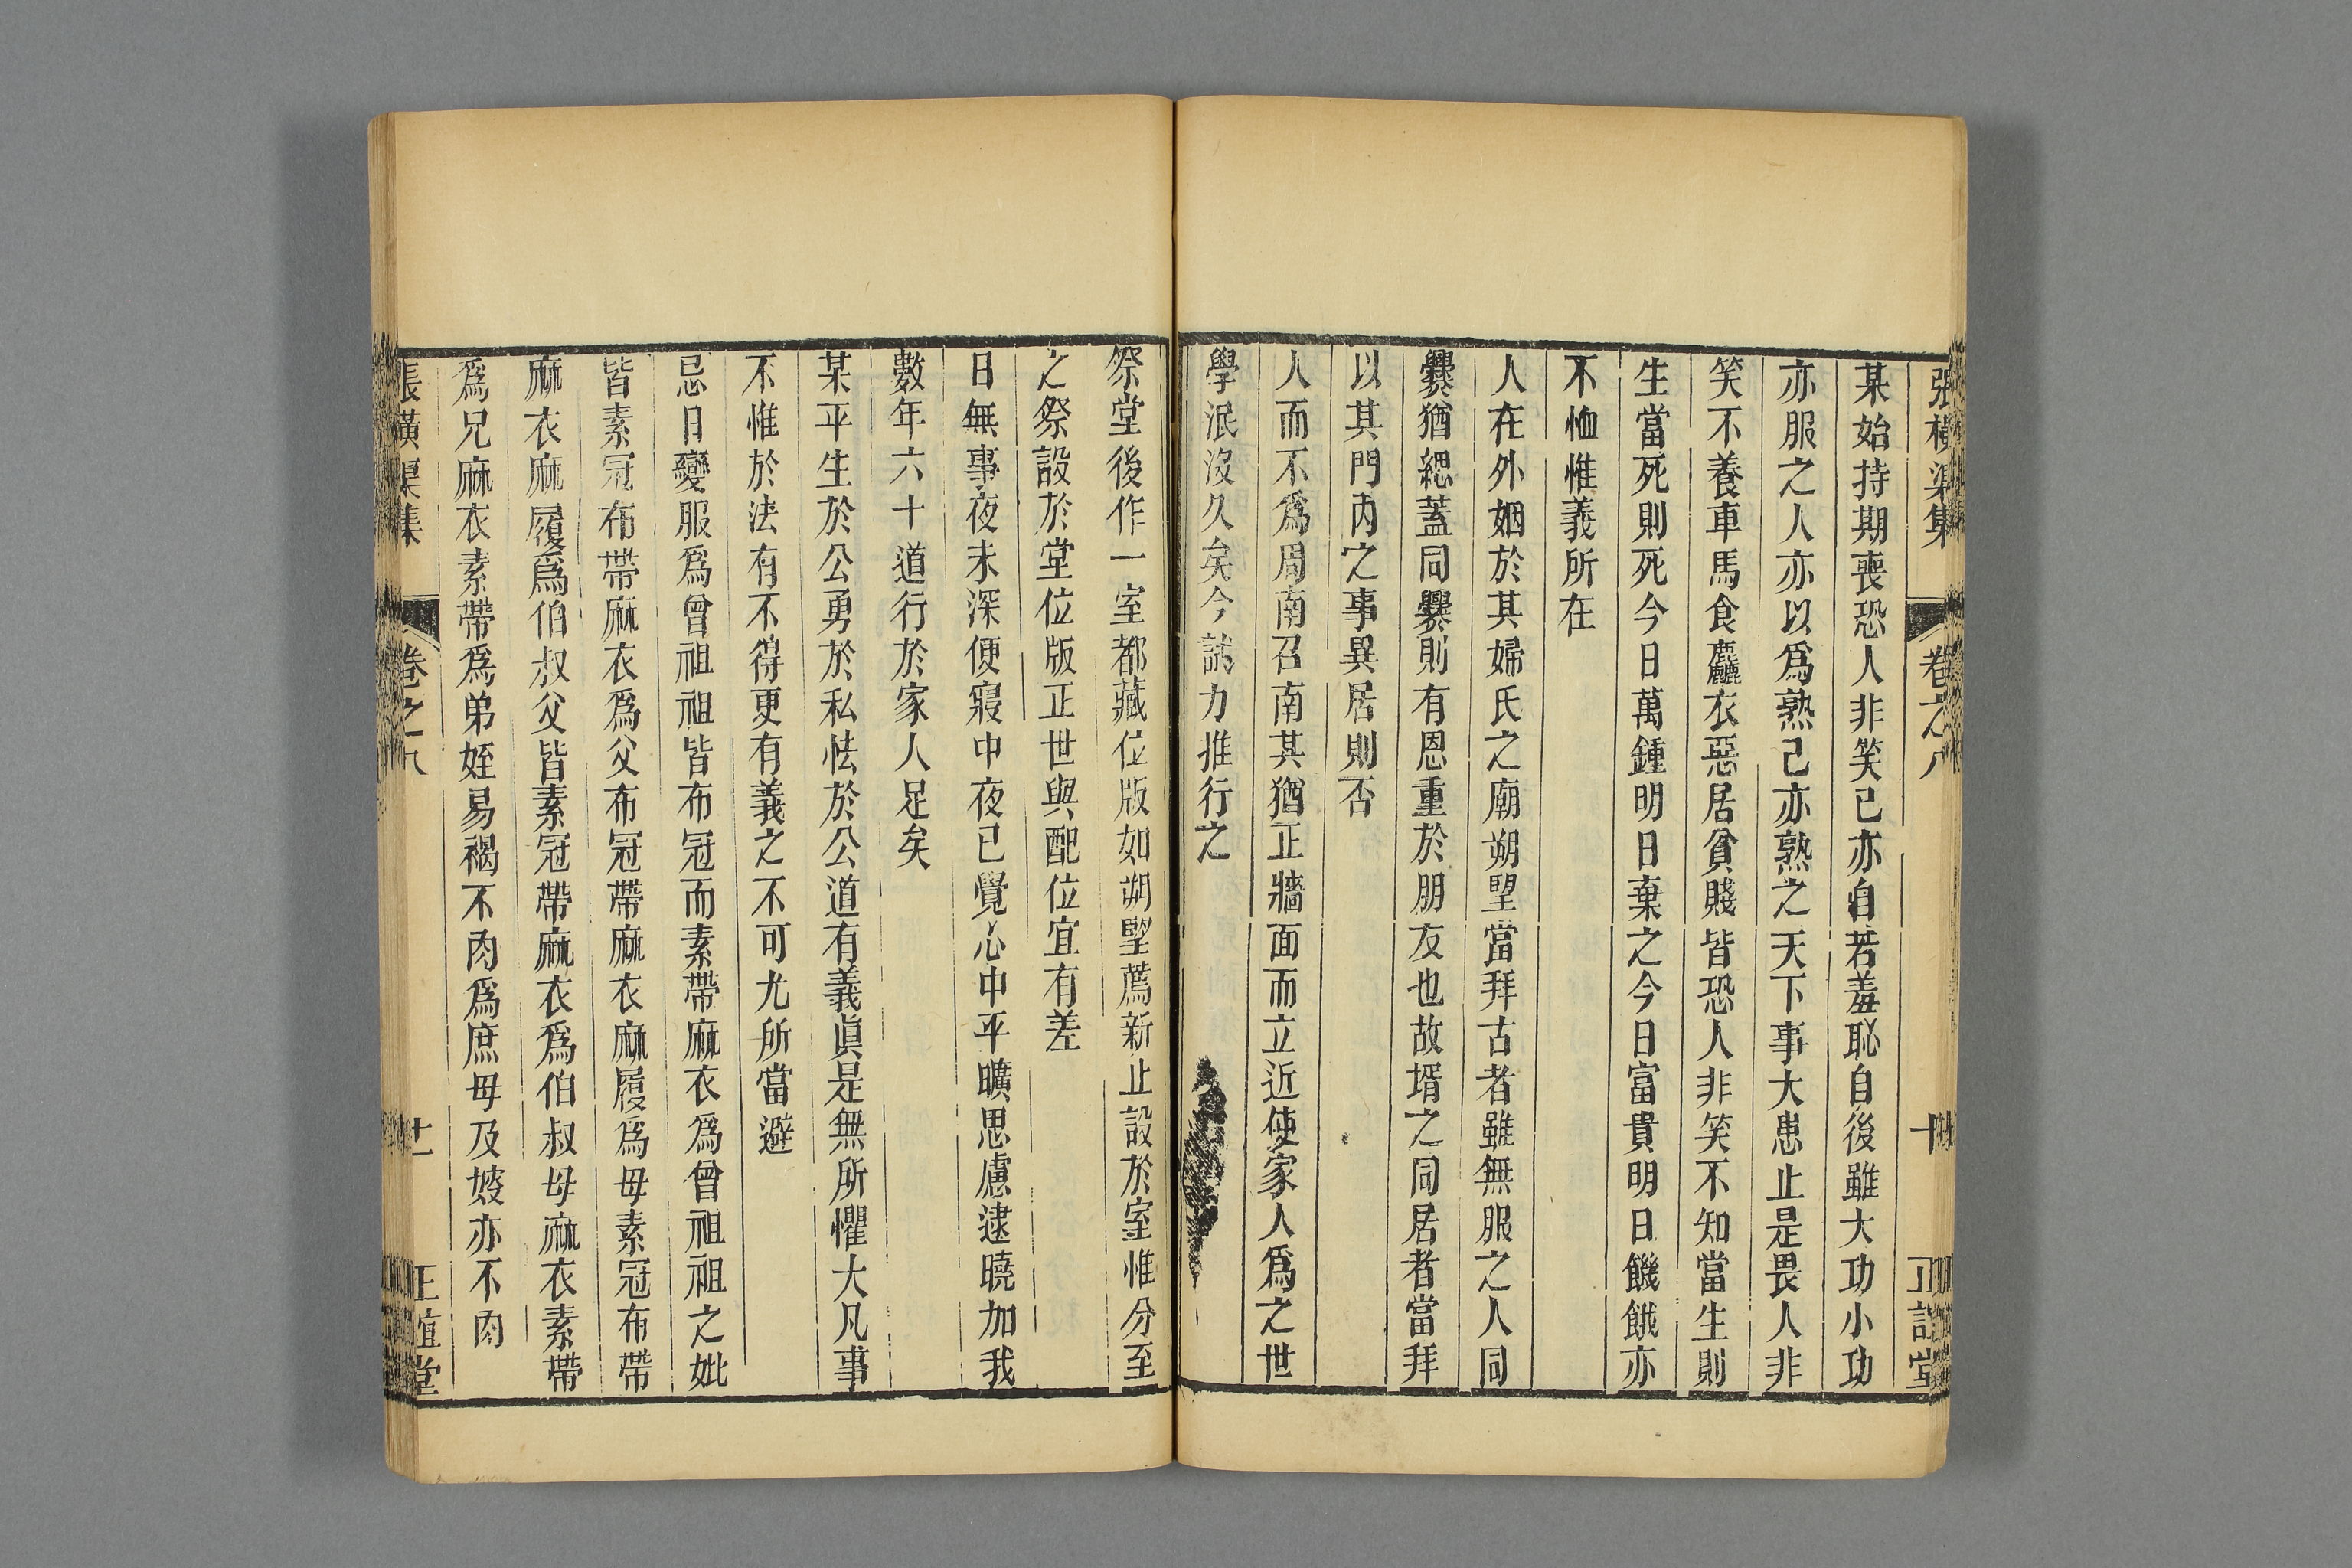 張橫渠集 卷之八 十 正誼堂
某始持期喪恐人非笑己亦自若羞恥自後雖大功小功
亦服之人亦以爲熟己亦熟之天下事大患止是畏人非
笑不養車馬食麤衣惡居貧賤皆恐人非笑不知當生則
生當死則死今日萬鍾明日棄之今日富貴明日饑餓亦
不恤惟義所在
人在外姻於其婦氏之廟朔朢當拜古者雖無服之人同
爨猶緦蓋同爨則有恩重於朋友也故壻之同居者當拜
以其門內之事異居則否
人而不爲周南召南其猶正牆面而立近使家人爲之世
學泯沒久矣今試力推行之
祭堂後作一室都藏位版如朔朢薦新止設於室惟分至
之祭設於堂位版正世與配位宜有差
日無事夜未深便寢中夜已覺心中平曠思慮逮曉加我
數年六十道行於家人足矣
某平生於公勇於私怯於公道有義眞是無所懼大凡事
不惟於法有不得更有義之不可尤所當避
忌日變服爲曾祖祖皆布冠而素帶麻衣爲曾祖祖之妣
皆素冠布帶麻衣爲父布冠帶麻衣麻履爲母素冠布帶
麻衣麻履爲伯叔父皆素冠帶麻衣爲伯叔母麻衣素帶
爲兄麻衣素帶爲弟姪易褐不肉爲庶母及嫂亦不肉
張橫渠集 卷之八 十一 正誼堂